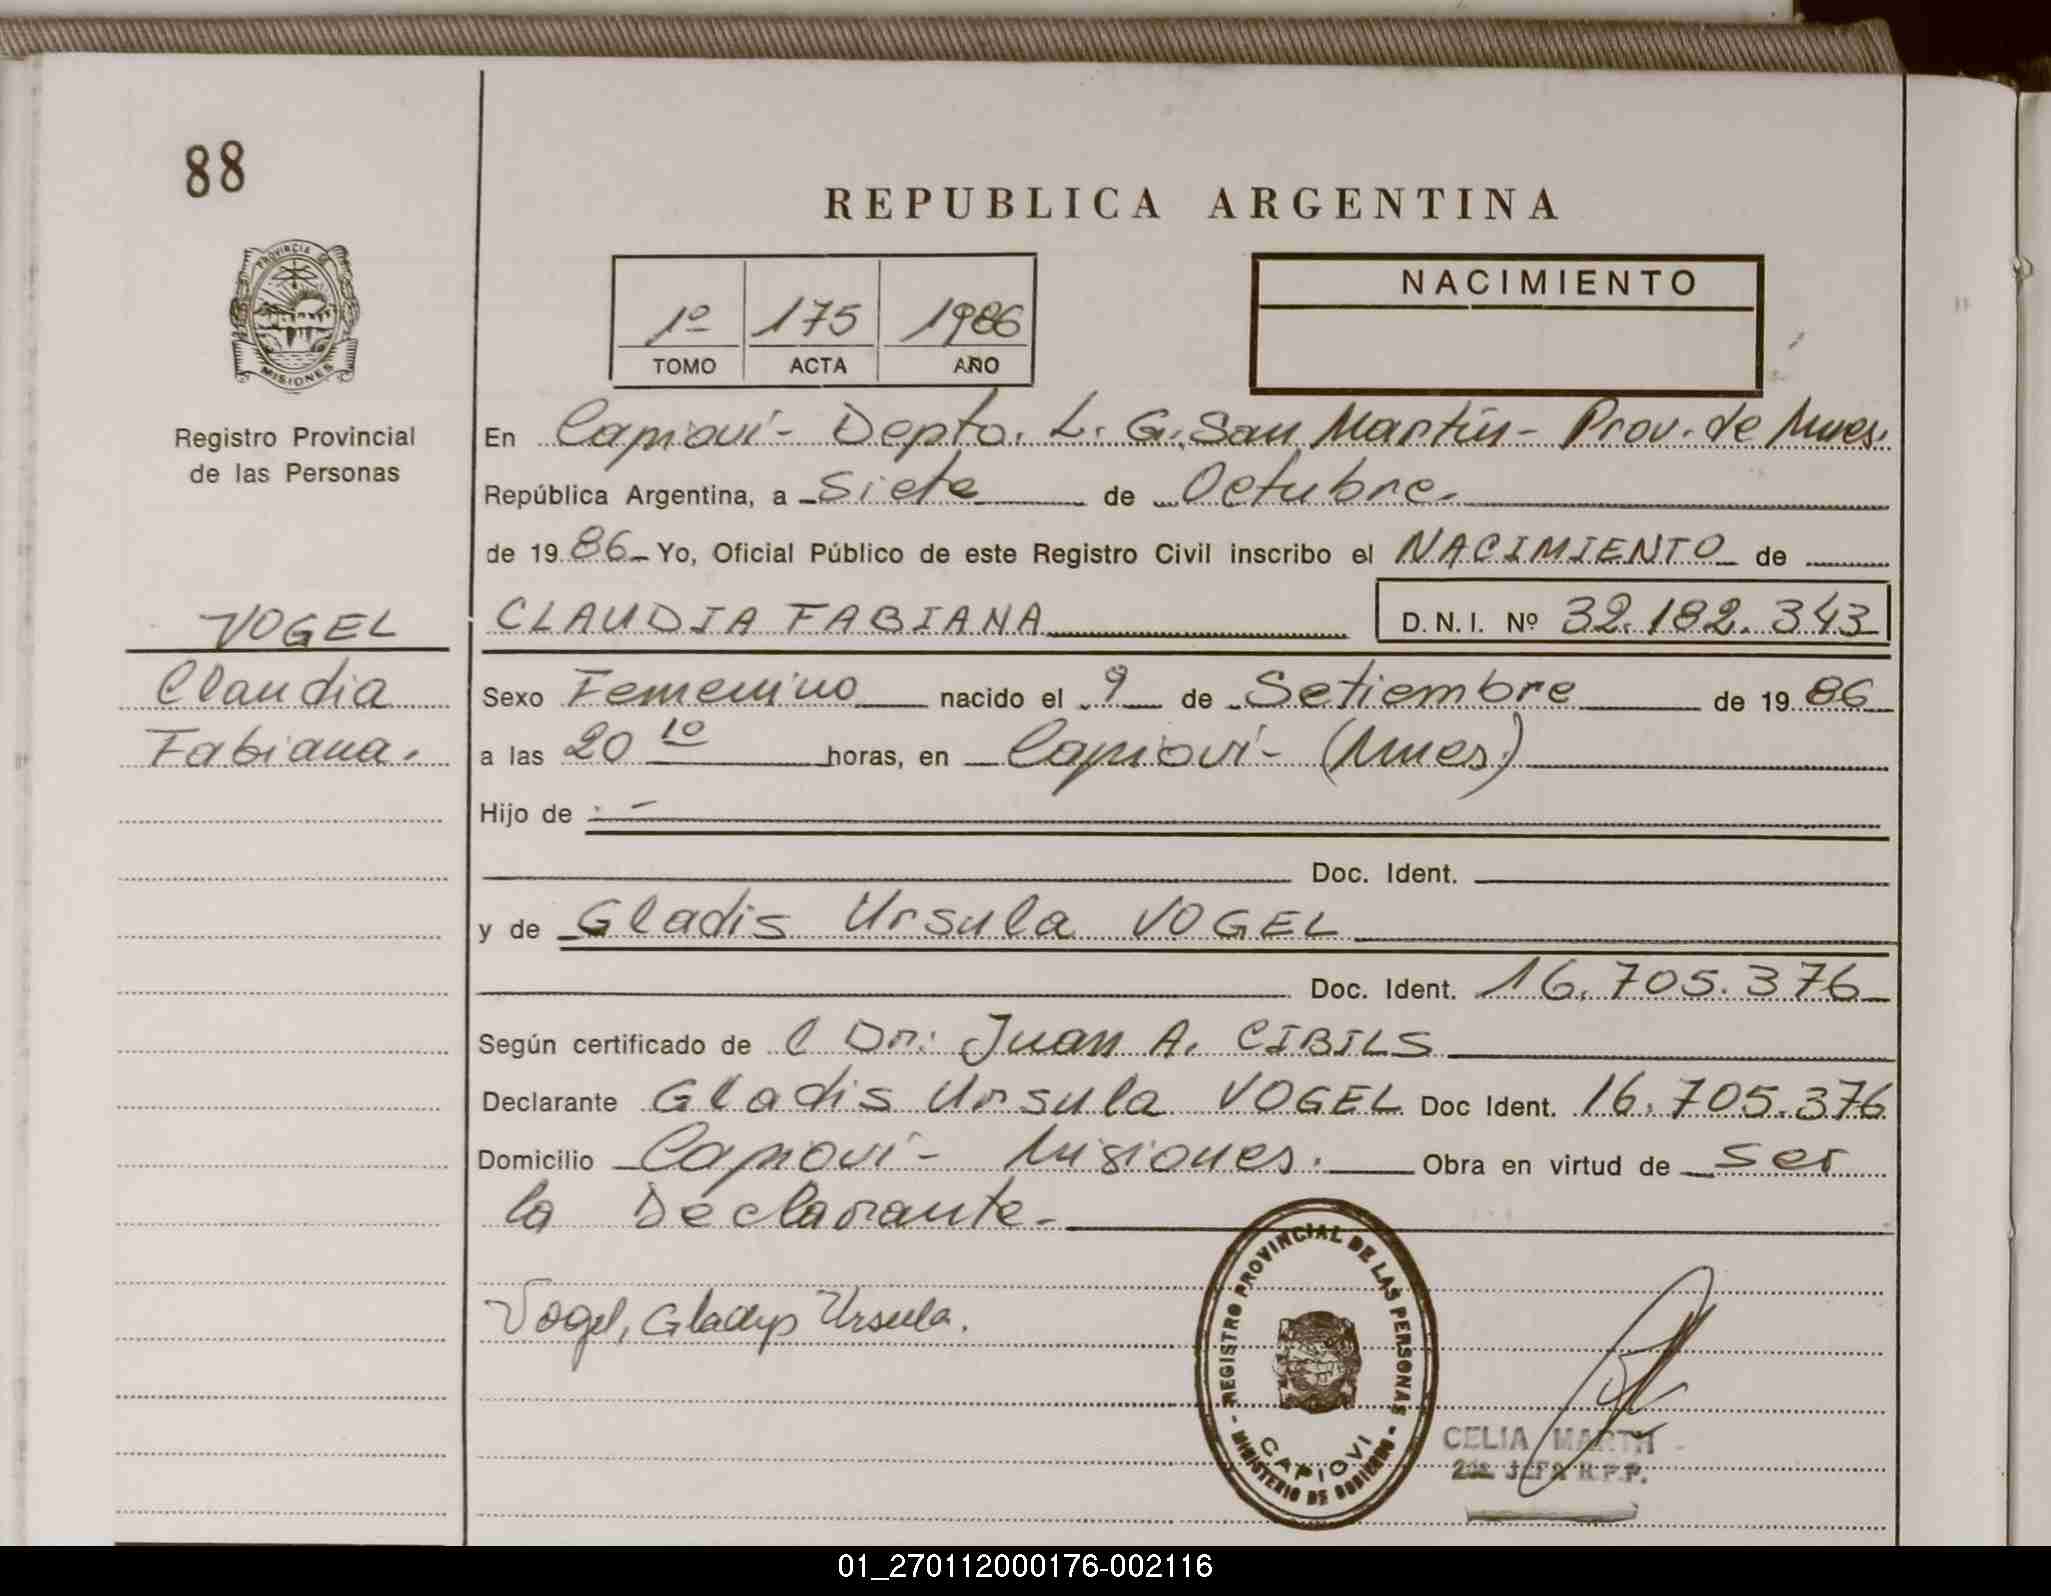 88
REPUBLICA ARGENTINA
PROVINCIA DE
MISIONES
1º 175 1986
TOMO ACTA AÑO
NACIMIENTO
Registro Provincial
de las Personas
En Capioví - Depto. L. G. San Martín - Prov. de Mnes.
República Argentina, a Siete de Octubre.
de 19 86 Yo, Oficial Público de este Registro Civil inscribo el NACIMIENTO de
CLAUDIA FABIANA D.N.I. Nº 32.182.343
VOGEL
Claudia
Fabiana.
Sexo Femenino nacido el 9 de Setiembre de 19 86
a las 20 10 horas, en Capioví - (Mnes.)
Hijo de . -
Doc. Ident.
y de Gladis Ursula VOGEL
Doc. Ident. 16.705.376
Según certificado de l Dr: Juan A. CIBILS
Declarante Gladis Ursula VOGEL Doc Ident. 16.705.376
Domicilio Capioví - Misiones. Obra en virtud de ser
la Declarante -
Vogel, Gladys Ursula.
REGISTRO PROVINCIAL DE LAS PERSONAS
CAPIOVI
- MINISTERIO DE GOBIERNO -
CELIA MARTH
JEFA R.P.P.
01_270112000176-002116